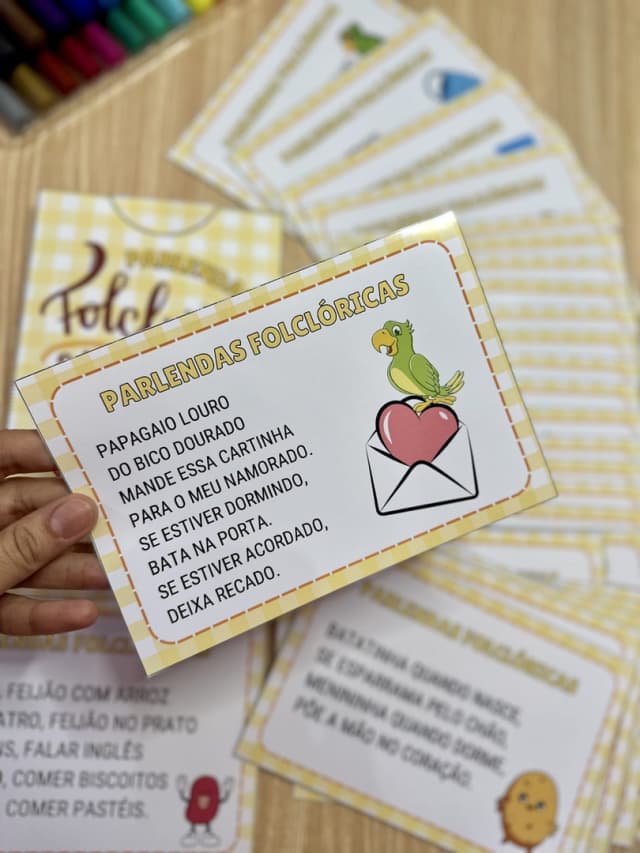 PARLENDAS FOLCLÓRICAS
PAPAGAIO LOURO
DO BICO DOURADO
MANDE ESSA CARTINHA
PARA O MEU NAMORADO.
SE ESTIVER DORMINDO,
BATA NA PORTA.
SE ESTIVER ACORDADO,
DEIXA RECADO.
PARLENDAS FOLCLÓRICAS
BATATINHA QUANDO NASCE,
SE ESPARRAMA PELO CHÃO,
MENININHA QUANDO DORME,
PÕE A MÃO NO CORAÇÃO.
, FEIJÃO COM ARROZ
FEIJÃO NO PRATO
FALAR INGLÊS
COMER BISCOITOS
COMER PASTÉIS.